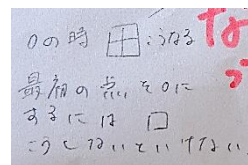 0の時 田 こうなる
最初の点を0に
するには 口
こうしないといけない
な